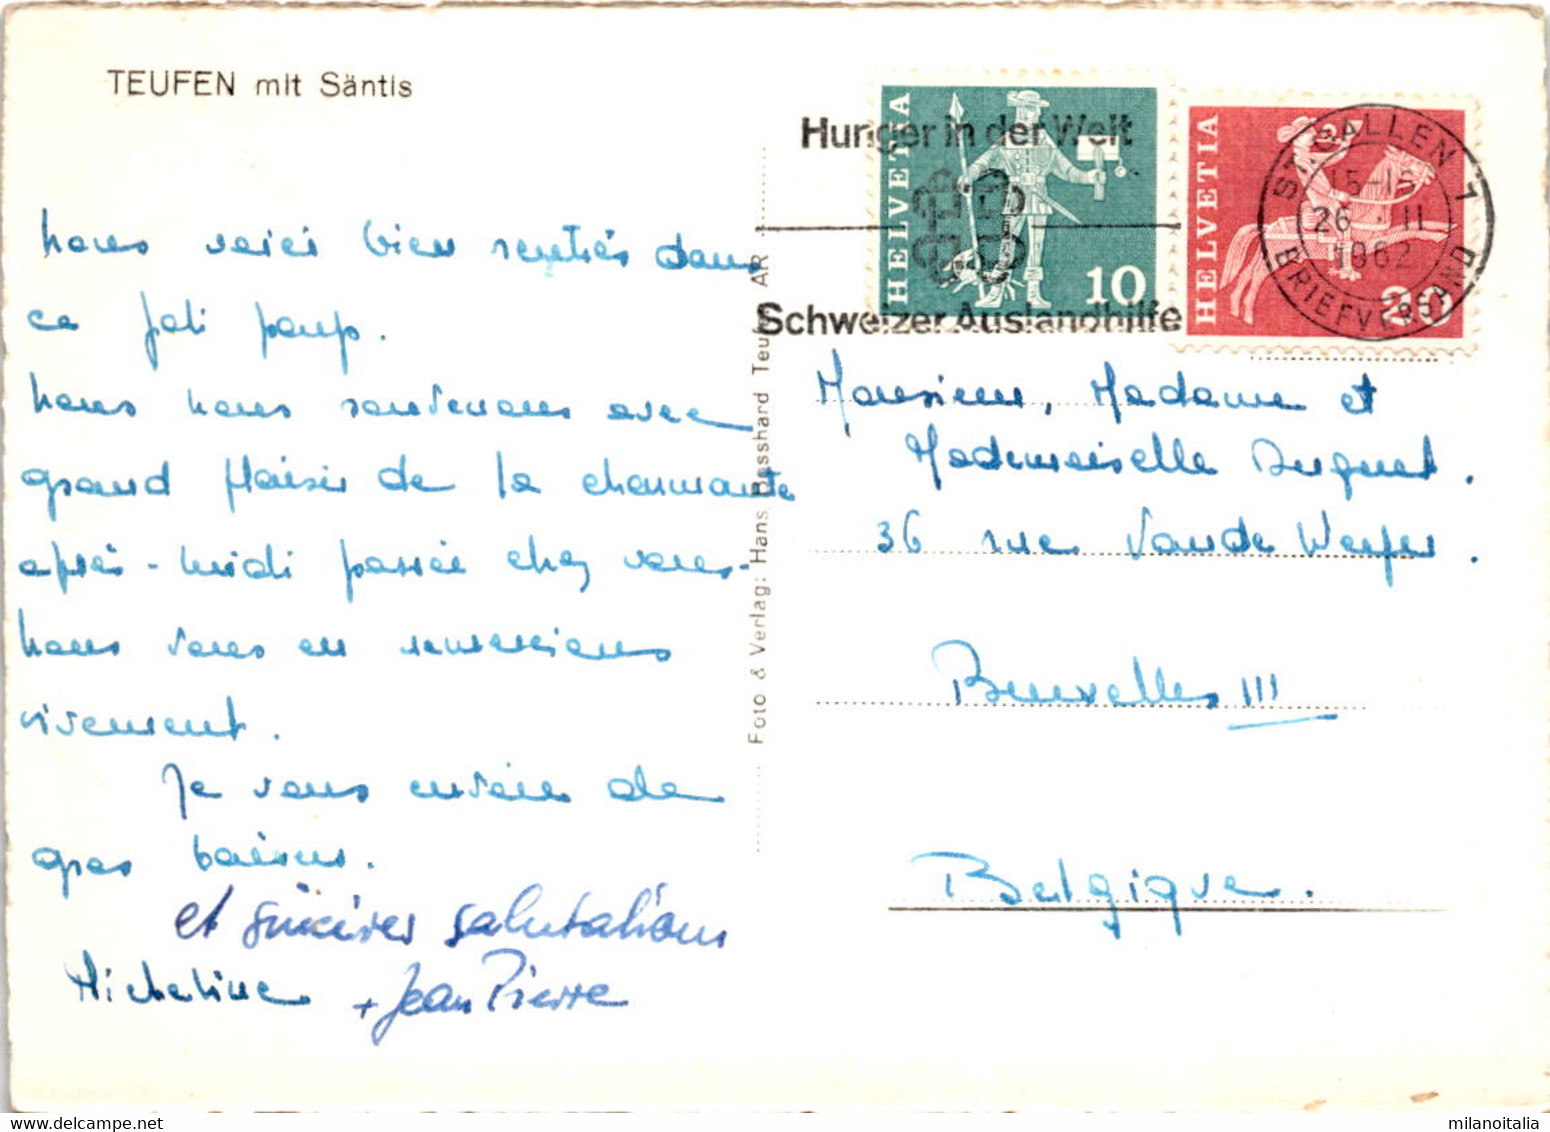 TEUFEN mit Säntis
Nous voici bien rentrés dans
ce joli pays.
Nous nous souvenons avec
grand plaisir de la charmante
après-midi passée chez vous-
Nous vous en remercions
vivement.
Je vous envoie de
gros baisers.
et sincères salutations
Micheline + Jean Pierre
Foto & Verlag: Hans Bosshard Teufen AR
Hunger in der Welt
Schweizer Auslandhilfe
HELVETIA
10
HELVETIA
20
ST. GALLEN 1
15-16
26. II
1962
BRIEFVERSAND
Monsieur, Madame et
Mademoiselle Duquet.
36 rue Van de Weyer.
Bruxelles III
Belgique.
milanoitalia